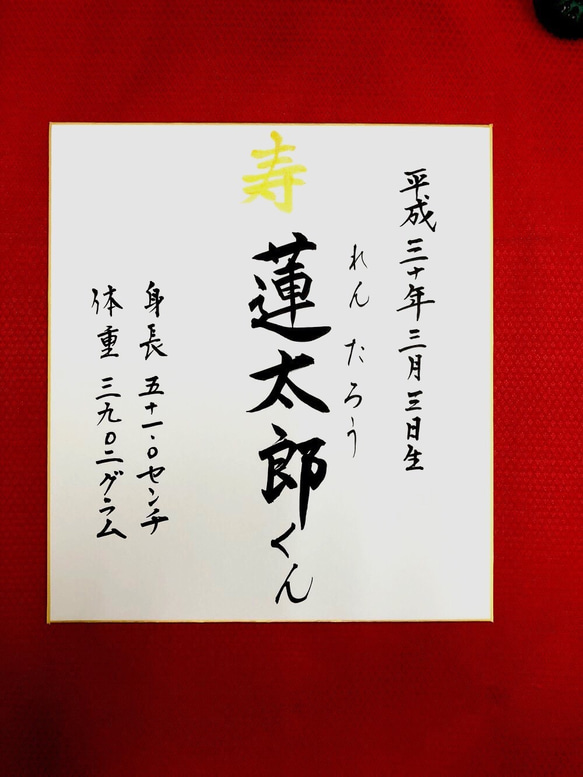 平成三十年三月三日生
れんたろう
寿
蓮太郎くん
身長 五十一.〇センチ
体重 三九〇二グラム